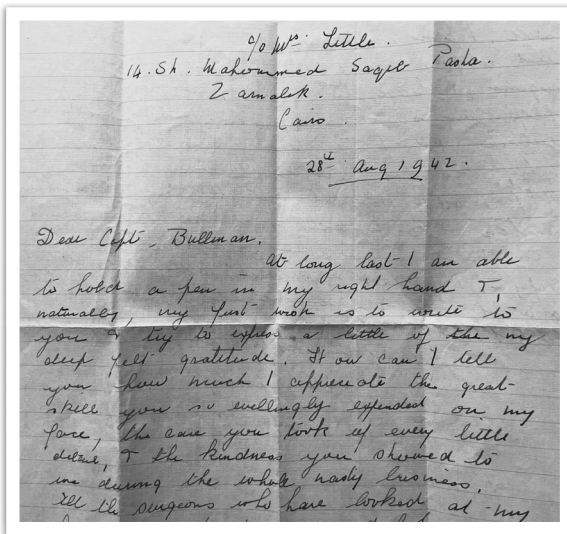 c/o Mrs Little.
14. Sh. Mahommed Saqeb Pasha.
Zamalek.
Cairo.
28th Aug 1942.
Dear Capt. Bullman,
At long last I am able
to hold a pen in my right hand &,
naturally, my first wish is to write to
you & try to express a little of the my
deep felt gratitude. How can I tell
you how much I appreciate the great
skill you so willingly expended on my
face, the care you took of every little
detail, & the kindness you showed to
me during the whole nasty business.
All the surgeons who have looked at my